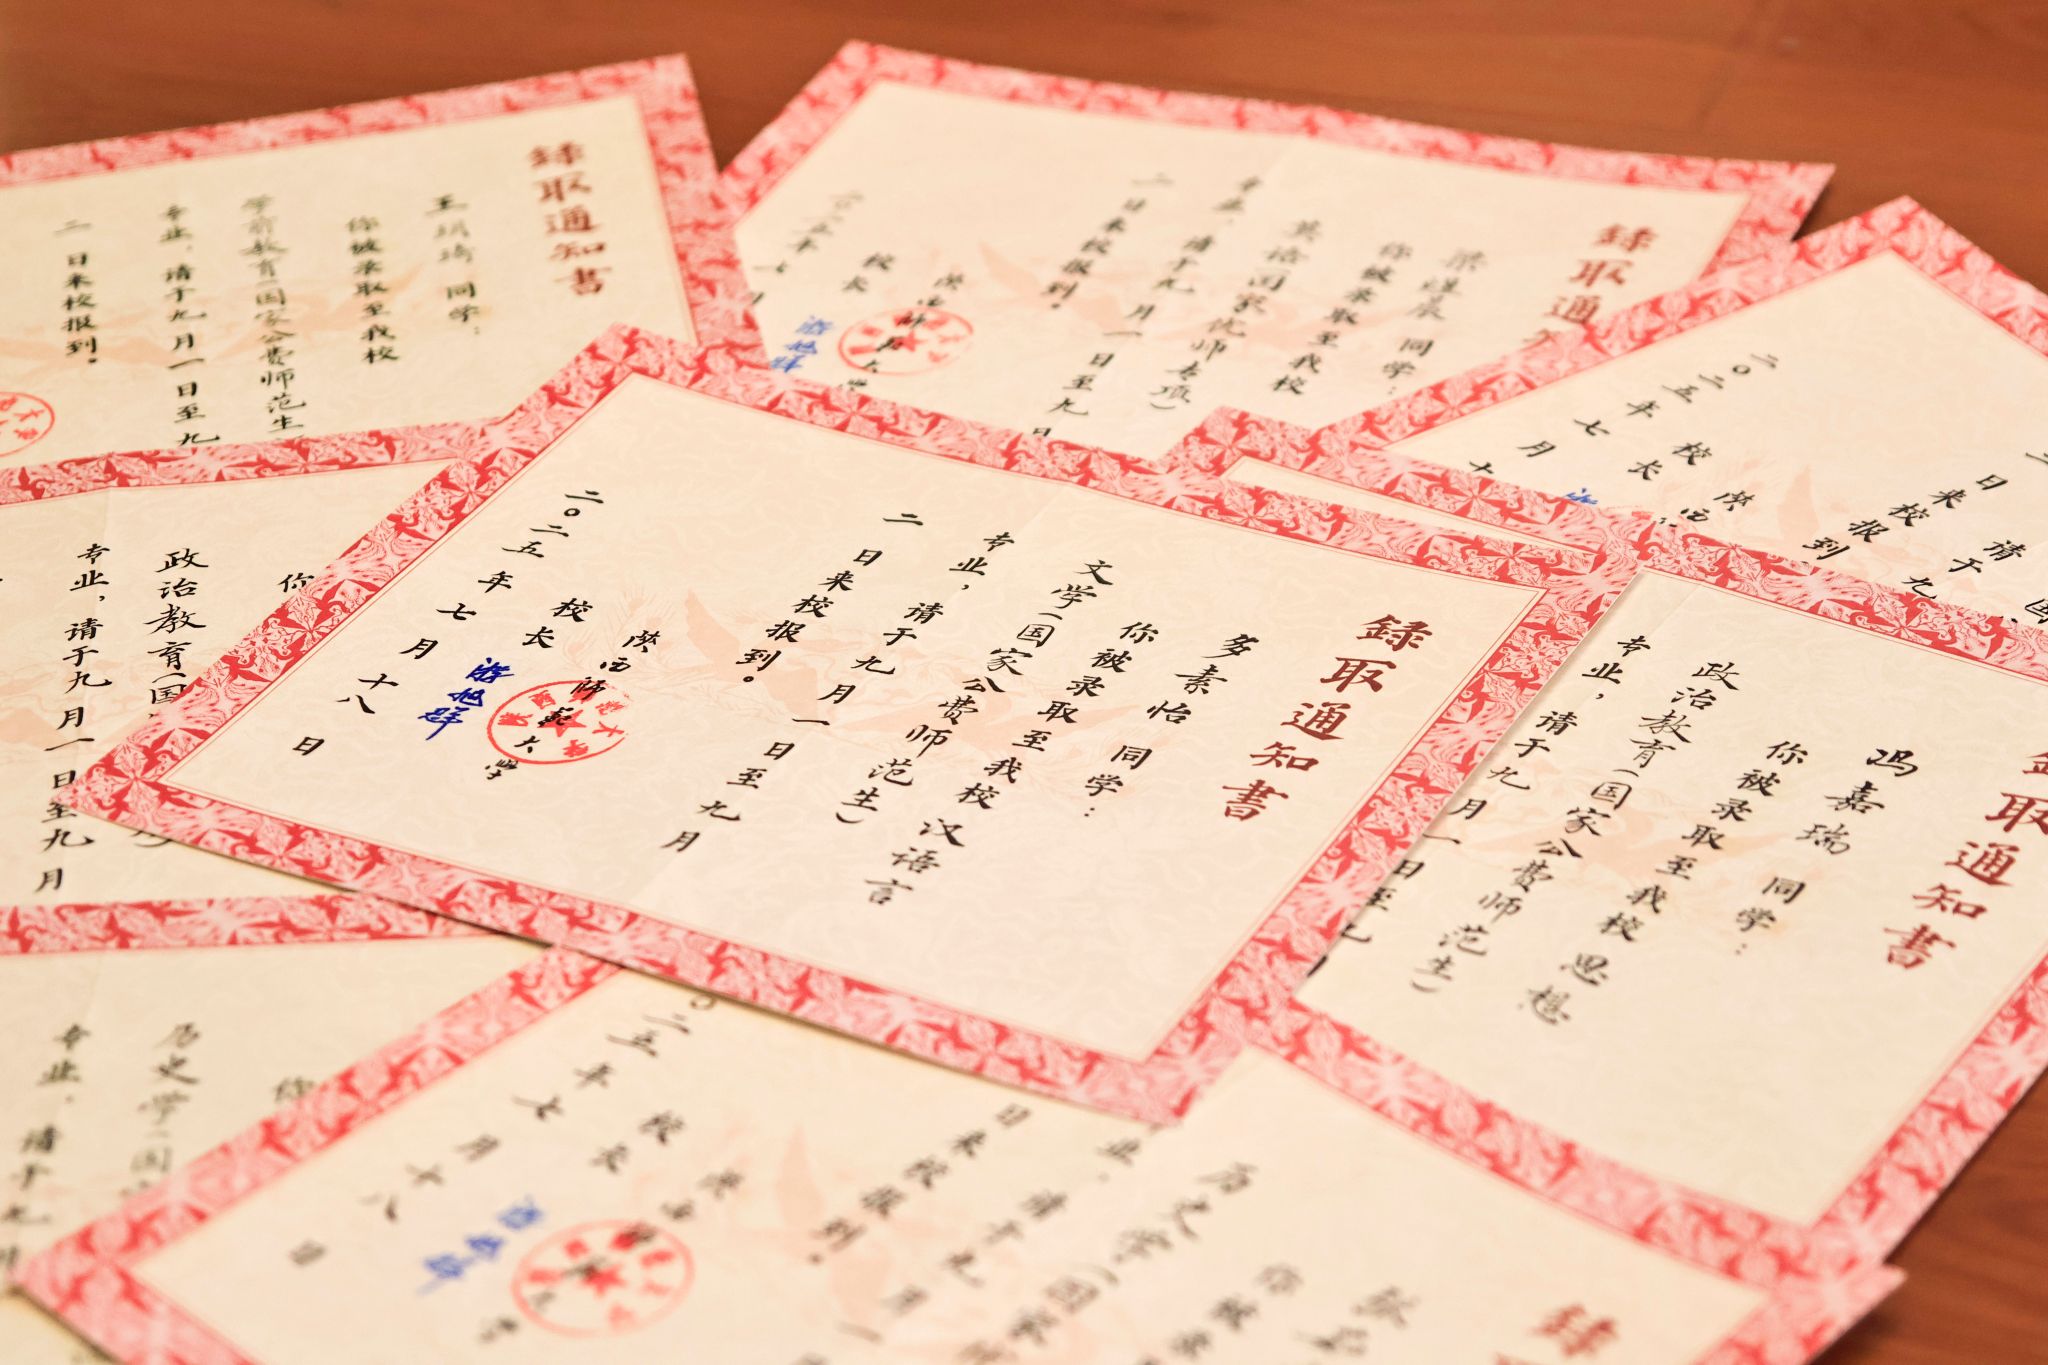 錄取通知書
王玥琦 同学：
你被录取至我校
学前教育（国家公费师范生
专业，请于九月一日至九
二日来校报到。
錄取通知
同学：
你被录取至我校
英语（国家优师专项）
专业，请于九月一日至九
二日来校报到。
陕西师范大
校长 游旭群
二〇二五年七
请于九
二日来校报到
陕西
校长
二〇二五年七月十
錄取通知書
多素怡 同学：
你被录取至我校 汉语言
文学（国家公费师范生）
专业，请于九月一日至九月
二日来校报到。
陕西师范大学
校长 游旭群
二〇二五年七月十八日
錄取通知書
冯嘉瑞 同学：
你被录取至我校 思想
政治教育（国家公费师范生）
专业，请于九月一日至九
你
政治教育（国
专业，请于九月一日至九月
你
历史学（国
专业，请于九
錄
张
你被录
历史学（国家
业，请于九月一
日来校报到。
陕西师 学
校长 游旭群
〇二五年七月十八日